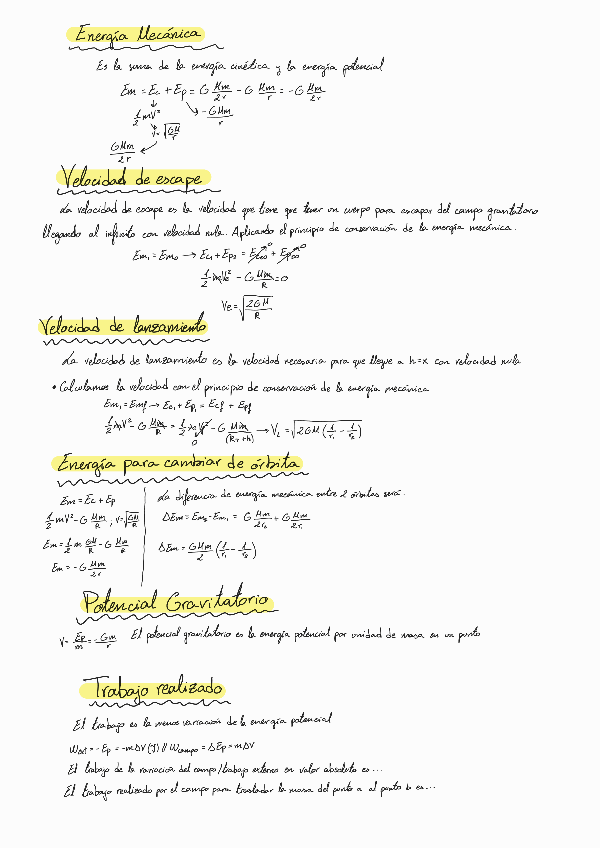 Energía Mecánica
Es la suma de la energía cinética y la energía potencial
Em = Ec + Ep = G Mm/2r - G Mm/r = -G Mm/2r
1/2 mV² -GMm/r
V = √(GM/r)
GMm/2r
Velocidad de escape
La velocidad de escape es la velocidad que tiene que tener un cuerpo para escapar del campo gravitatorio
llegando al infinito con velocidad nula. Aplicando el principio de conservación de la energía mecánica.
Em₁ = Em∞ → Ec₁ + Ep₁ = Ec∞ ⁰ + Ep∞ ⁰
1/2 mVe² - G Mm/R = 0
Ve = √(2GM/R)
Velocidad de lanzamiento
La velocidad de lanzamiento es la velocidad necesaria para que llegue a h=x con velocidad nula
• Calculamos la velocidad con el principio de conservación de la energía mecánica
Em₁ = Emf → Ec₁ + Ep₁ = Ecf + Epf
1/2 mV² - G Mm/R = 1/2 mV² - G Mm/(RT+h) → VL = √(2GM(1/r₁ - 1/r₂))
0
Energía para cambiar de órbita
Em = Ec + Ep
1/2 mV² - G Mm/R ; V = √(GM/R)
Em = 1/2 m GM/R - G Mm/R
Em = -G Mm/2r
La diferencia de energía mecánica entre 2 órbitas será:
ΔEm = Em₂ - Em₁ = G Mm/2r₂ + G Mm/2r₁
ΔEm = GMm/2 (1/r₁ - 1/r₂)
Potencial Gravitatorio
V = Ep/m = -Gm/r El potencial gravitatorio es la energía potencial por unidad de masa en un punto
Trabajo realizado
El trabajo es la menos variación de la energía potencial
Wext = -Ep = -mΔV (J) // Wcampo = ΔEp = mΔV
El trabajo de la variación del campo/trabajo externo en valor absoluto es...
El trabajo realizado por el campo para trasladar la masa del punto a al punto b es...